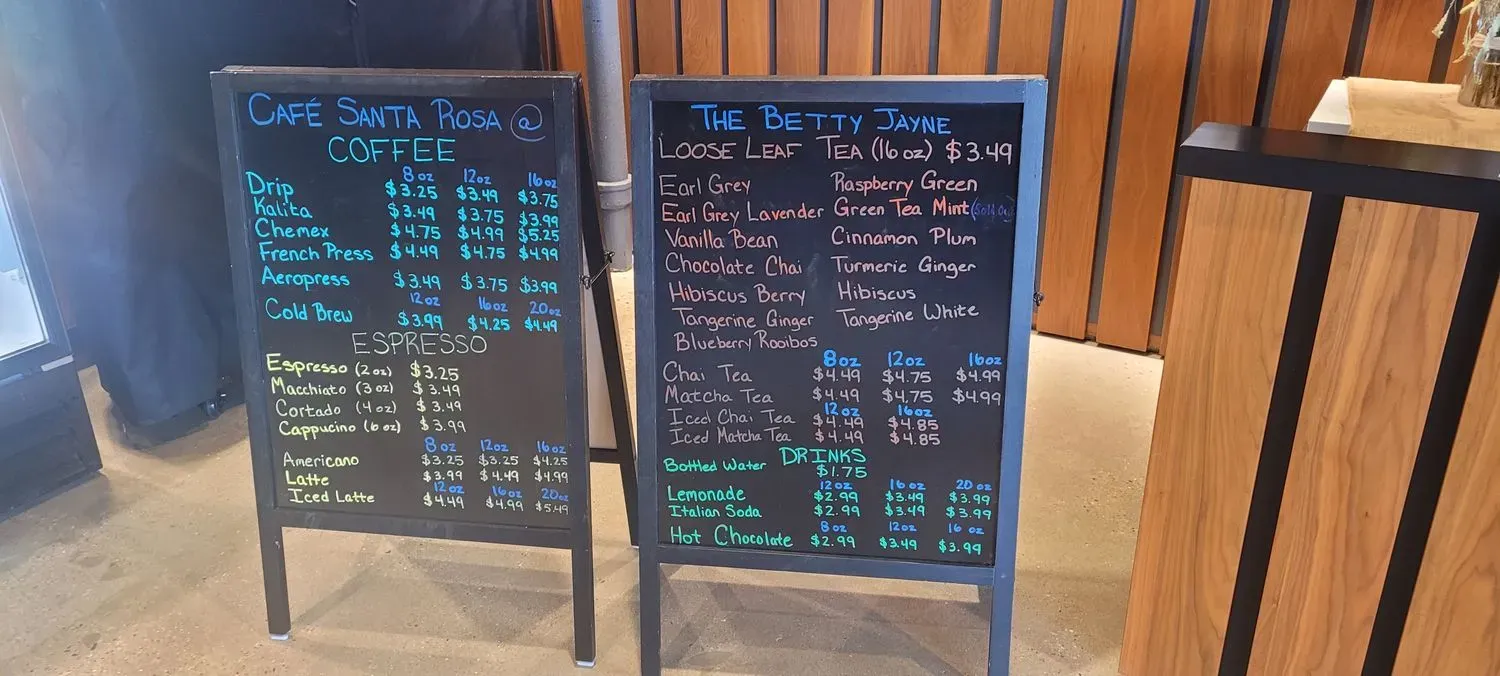 CAFÉ SANTA ROSA @
COFFEE
8 oz 12 oz 16 oz
Drip $3.25 $3.49 $3.75
Kalita $3.49 $3.75 $3.99
Chemex $4.75 $4.99 $5.25
French Press $4.49 $4.75 $4.99
Aeropress $3.49 $3.75 $3.99
12 oz 16 oz 20 oz
Cold Brew $3.99 $4.25 $4.49
ESPRESSO
Espresso (2 oz) $3.25
Macchiato (3 oz) $3.49
Cortado (4 oz) $3.49
Cappucino (6 oz) $3.99
8 oz 12 oz 16 oz
Americano $3.25 $3.25 $4.25
Latte $3.99 $4.49 $4.99
12 oz 16 oz 20 oz
Iced Latte $4.49 $4.99 $5.49
THE BETTY JAYNE
LOOSE LEAF TEA (16 oz) $3.49
Earl Grey Raspberry Green
Earl Grey Lavender Green Tea Mint (Sold Out)
Vanilla Bean Cinnamon Plum
Chocolate Chai Turmeric Ginger
Hibiscus Berry Hibiscus
Tangerine Ginger Tangerine White
Blueberry Rooibos
8 oz 12 oz 16 oz
Chai Tea $4.49 $4.75 $4.99
Matcha Tea $4.49 $4.75 $4.99
12 oz 16 oz
Iced Chai Tea $4.49 $4.85
Iced Matcha Tea $4.49 $4.85
DRINKS
Bottled Water $1.75
12 oz 16 oz 20 oz
Lemonade $2.99 $3.49 $3.99
Italian Soda $2.99 $3.49 $3.99
8 oz 12 oz 16 oz
Hot Chocolate $2.99 $3.49 $3.99